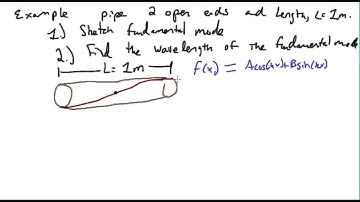 Example pipe 2 open ends and Length, L = 1m.
1.) Sketch fundamental mode
2.) Find the wavelength of the fundamental mode
L = 1m
f(x) = A cos(kx) + B sin(kx)